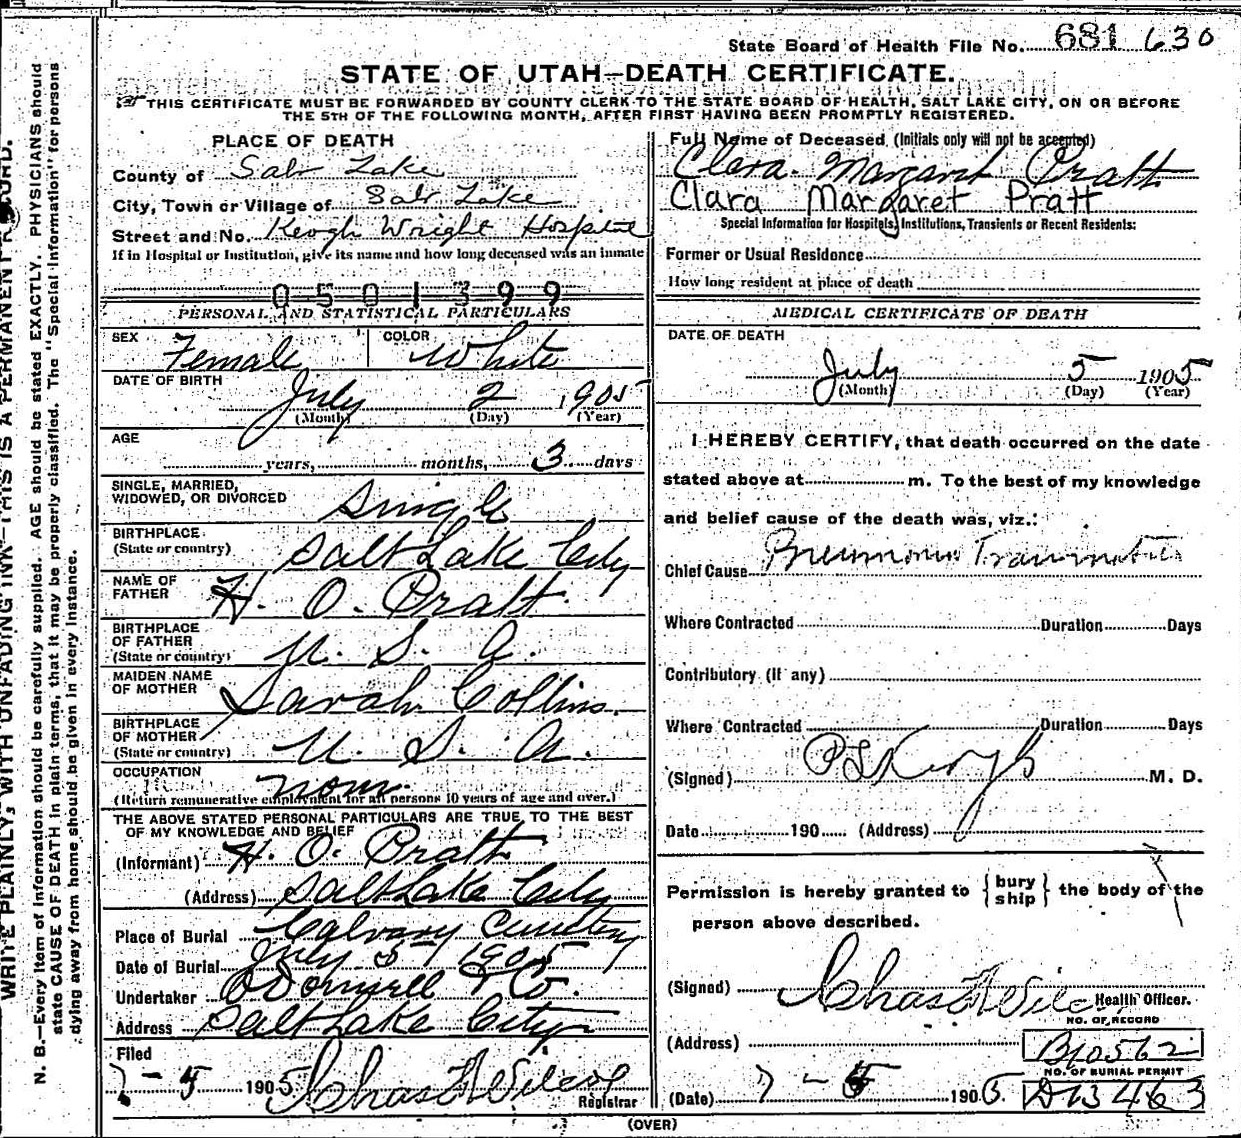 State Board of Health File No. 681 630
STATE OF UTAH—DEATH CERTIFICATE.
THIS CERTIFICATE MUST BE FORWARDED BY COUNTY CLERK TO THE STATE BOARD OF HEALTH, SALT LAKE CITY, ON OR BEFORE
THE 5TH OF THE FOLLOWING MONTH, AFTER FIRST HAVING BEEN PROMPTLY REGISTERED.
PLACE OF DEATH
County of Salt Lake
City, Town or Village of Salt Lake
Street and No. Keogh Wright Hospital
If in Hospital or Institution, give its name and how long deceased was an inmate
0501399
PERSONAL AND STATISTICAL PARTICULARS
SEX Female COLOR White
DATE OF BIRTH
July 2 1905
(Month) (Day) (Year)
AGE
years, months, 3 days
SINGLE, MARRIED,
WIDOWED, OR DIVORCED Single
BIRTHPLACE
(State or country) Salt Lake City
NAME OF
FATHER H. O. Pratt.
BIRTHPLACE
OF FATHER
(State or country) U. S. A.
MAIDEN NAME
OF MOTHER Sarah Collins.
BIRTHPLACE
OF MOTHER
(State or country) U. S. A.
OCCUPATION
(Return remunerative employment for all persons 10 years of age and over.)
THE ABOVE STATED PERSONAL PARTICULARS ARE TRUE TO THE BEST
OF MY KNOWLEDGE AND BELIEF
(Informant) H. O. Pratt
(Address) Salt Lake City
Place of Burial Calvary Cemetery
Date of Burial July 5 1905
Undertaker O'Donnell & Co.
Address Salt Lake City
Filed
7-5 1905 Chas F Wilcox
Registrar
Full Name of Deceased (Initials only will not be accepted)
Clara Margaret Pratt
Clara Margaret Pratt
Special Information for Hospitals, Institutions, Transients or Recent Residents:
Former or Usual Residence
How long resident at place of death
MEDICAL CERTIFICATE OF DEATH
DATE OF DEATH
July 5 1905
(Month) (Day) (Year)
I HEREBY CERTIFY, that death occurred on the date
stated above at m. To the best of my knowledge
and belief cause of the death was, viz.:
Chief Cause Pneumonia Traumatic
Where Contracted Duration Days
Contributory (If any)
Where Contracted Duration Days
(Signed) P S Keogh M. D.
Date 190 (Address)
Permission is hereby granted to {bury ship} the body of the
person above described.
(Signed) Chas F Wilcox Health Officer.
NO. OF RECORD
(Address) B10562
NO. OF BURIAL PERMIT
(Date) 7-5 1905. D13463
(OVER)
WRITE PLAINLY, WITH UNFADING INK—THIS IS A PERMANENT RECORD.
N. B.—Every item of information should be carefully supplied. AGE should be stated EXACTLY. PHYSICIANS should
state CAUSE OF DEATH in plain terms, that it may be properly classified. The "Special Information" for persons
dying away from home should be given in every instance.